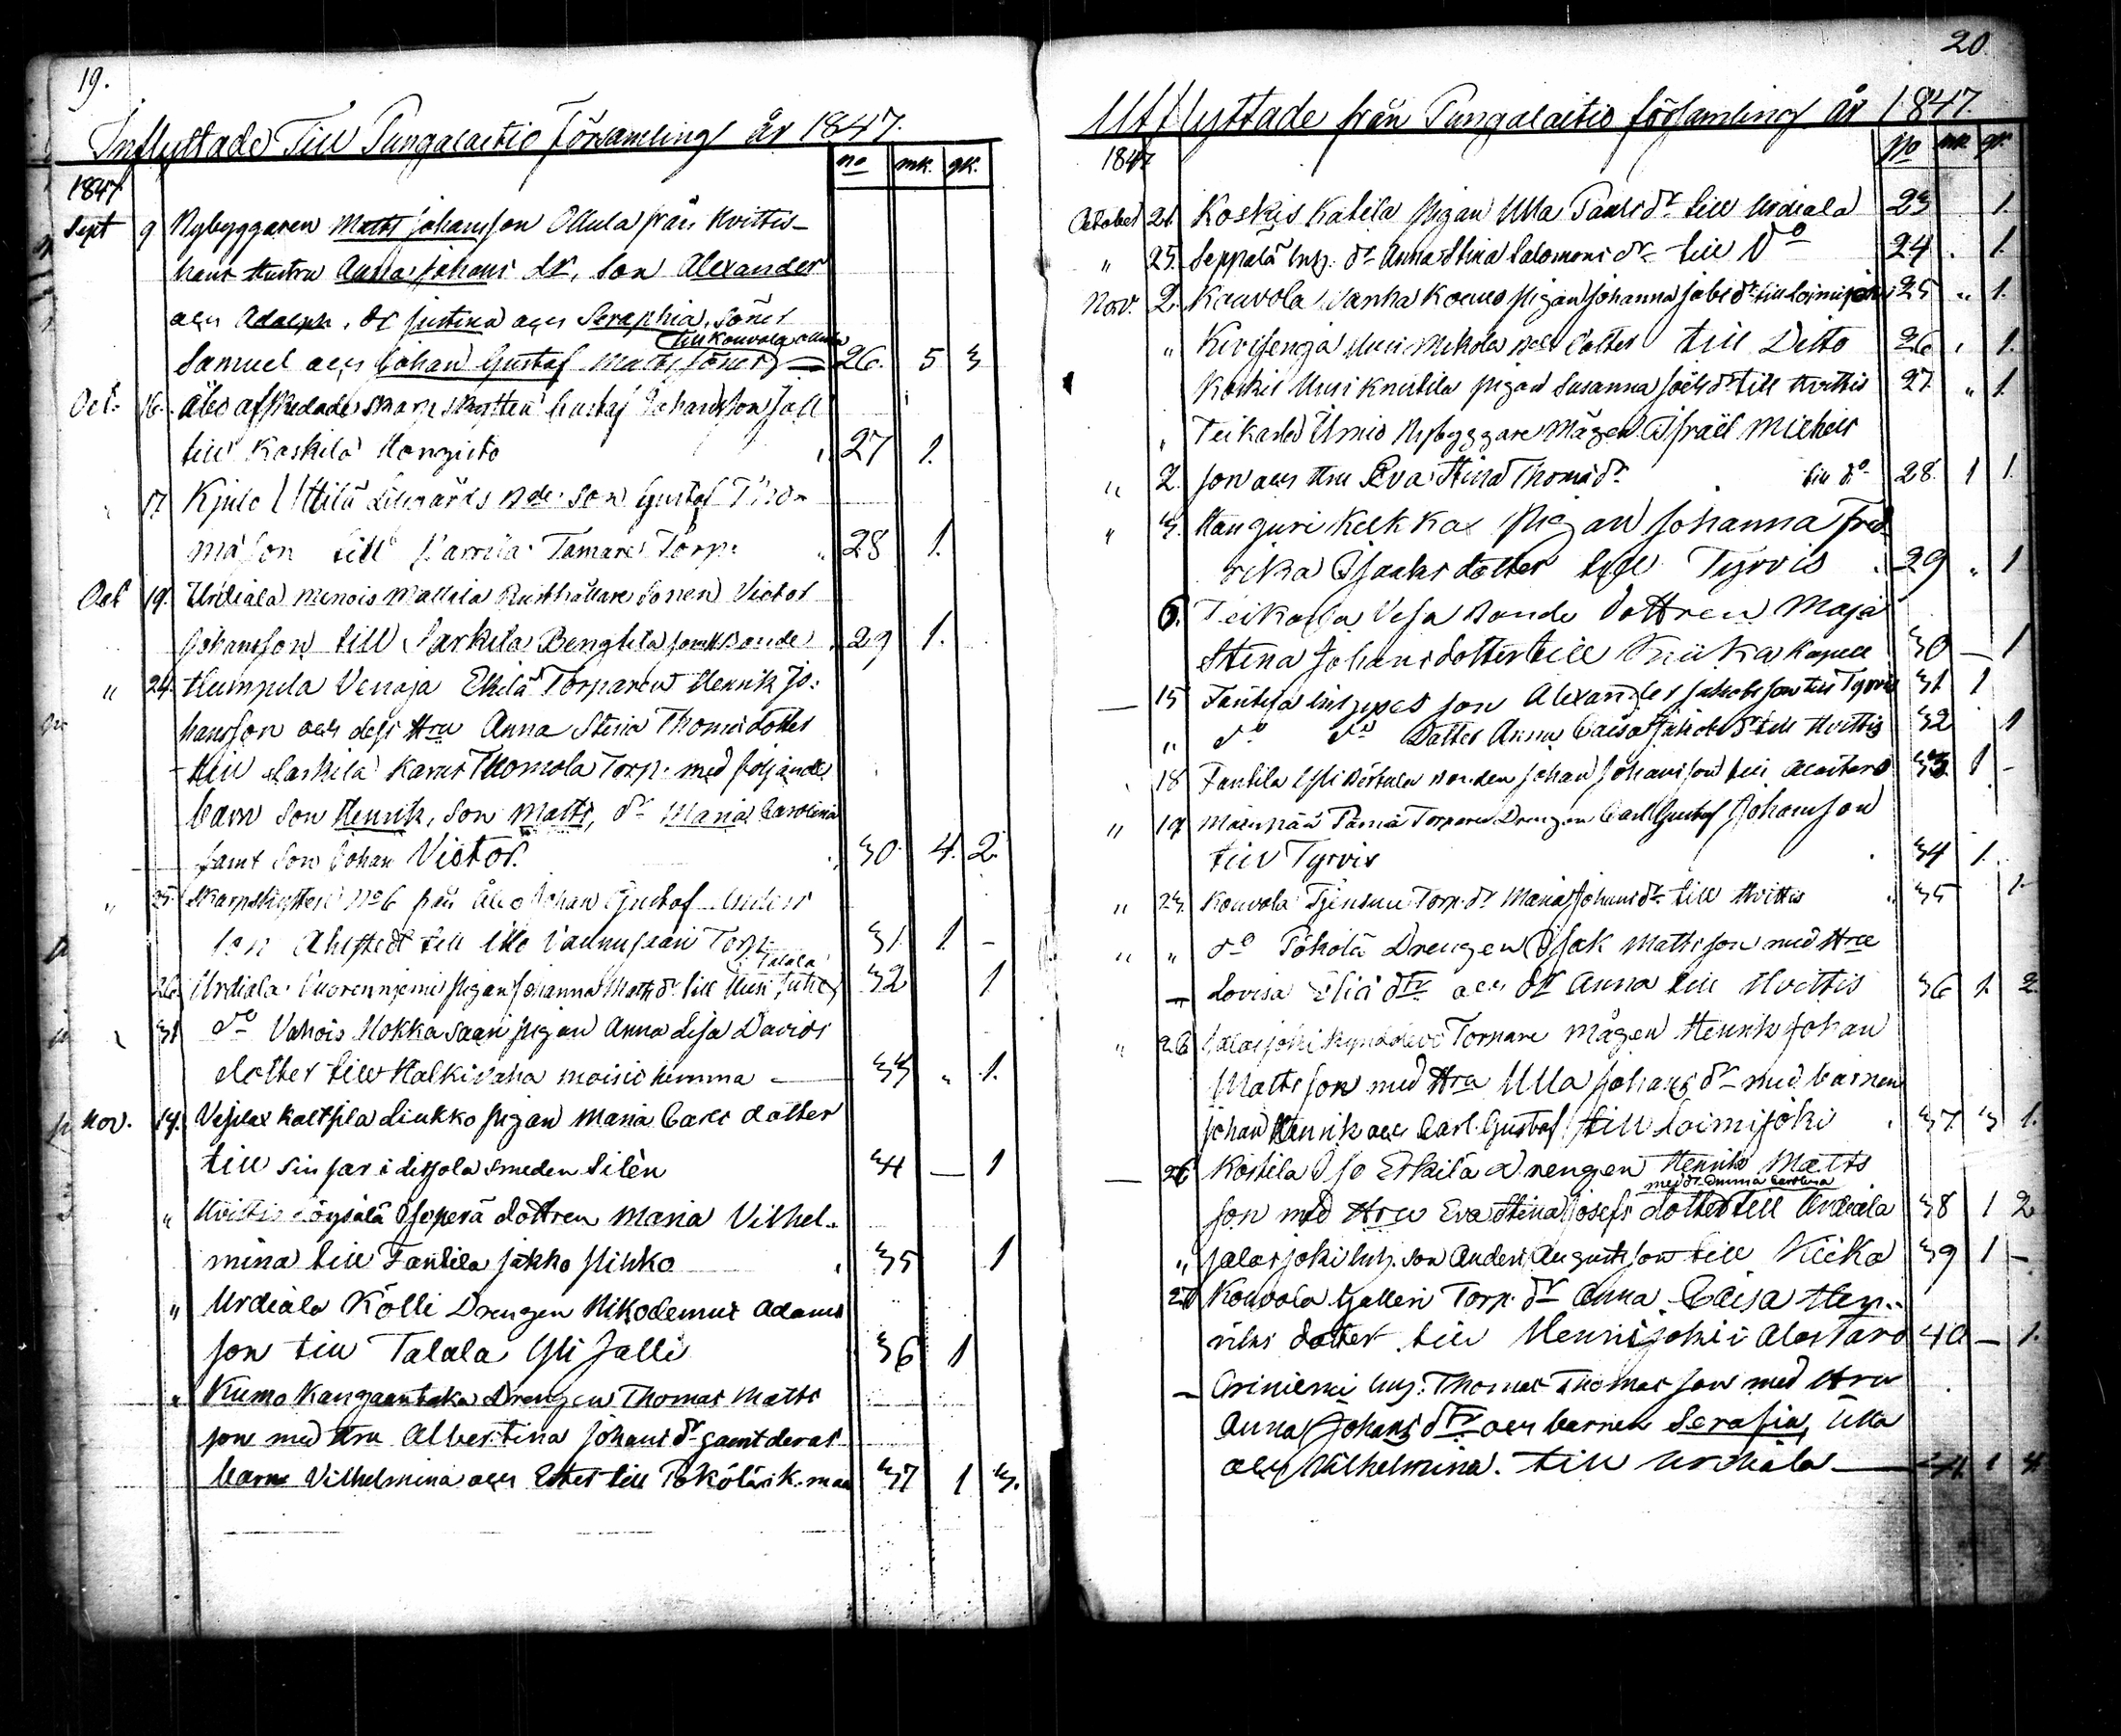 19.
Inflyttade Till Pungalaitio församling år 1847.
no mk. qk.
1847
Sept 9 Nybyggaren Matts Johansson Ollula från Hvittis-
hans Hustru Anna Johans dr, son Alexander
och Adolph, dr Justina och Seraphia, söner
till Kouvola Ollula
Samuel och Johan Gustaf Matts söner — 26. 5 3
Oct. 16. Åbo afskedade skarpskytten Gustaf Johansson Jall
till Kaskila Hongisto 27 1.
" 17 Kjulo Uttila Gustaf Tho-
mäson till Tamare Torp. 28 1.
Oct 19. Urdiala Menois Mallila Rusthållare Sonen Victor
Johansson till Sarkila Benghtila Bonde 29 1.
" 24. Humpila Venoja Ekilä Torparen Henrik Jo-
hansson och dess Hru Anna Stina Thomsdotter
till Sarkila Thomola Torp. med följande
barn son Henrik, Son Matts, dr Maria Carolina
samt son Johan Victor. 30 4. 2.
" 25. Skarpskytten No 6 från Åbo Johan Gustaf Anders
son Ahlstedt till Torp 31. 1. -
Talala
26. Urdiala Vuorenniemi pigan Johanna Matts dr till Uusi 32 1
31 do Vahois Hokka saari pigan Anna Lisa Davids
dotter till Halkivaha moisio hemma — 33 " 1.
Nov. 14. Vesilax Kaltsila Liukko pigan Maria Carls dotter
till sin far i Ditsola smeden Silén 34 — 1
" Hvittis Isoperä dottren Maria Vilhel-
mina till Fantila Jakko 35 1
" Urdiala Kölli Drengen Nikodemus Adams
son till Talala Yli Jalli 36 1
" Kumo Kangaantaka Drengen Thomas Matts
son med Hru Albertina Johans dr samt deras
barn Vilhelmina och Ester till Pokölä i K. maa 37 1 3.
20.
Utflyttade från Pungalaitio församling år 1847.
1847. No mk. qr.
October 21. Koskis Katila pigan Ulla Pauls dr till Urdiala 23 1.
" 25. Seppälä Inh. dr Anna Stina Salomons dr till Do 24 . 1.
Nov. 2. Kauvola Vanha Kouvo pigan Johanna dr till Loimijoki 25 " 1.
" Kivisenoja Uusi Mikola dotter till Ditto 26 . 1.
Koskis Uusi Knuutila pigan Susanna Joels dr till Hvittis 27 " 1.
" Teikarla Nybyggare Mågen Israël Michels
" 2. son och Hru Eva Stina Thoms dr till do 28. 1 1.
" 3. Hanguri Kiekka pigan Johanna Fred-
rika Isaks dotter till Tyrvis 29 " 1
6. Teikarla Vesa Bonde Dottren Maja
Stina Johansdotter till Kiika Kapell 30 — 1
— 15 Fantila Inhyses son Alexander Jakobsson till Tyrvis 31 1
" do do Dotter Anna Caisa Jakobs dr till Hvittis 32 1
18 Fantila Yli Bonden Johan Johansson till Alastaro 33 1 -
" 19 Maenpää Torpare Drengen Carl Gustaf Johansson
till Tyrvis 34 1.
" 23. Kouvola Torp. dr Maria Johans dr till Hvittis 35 1.
" " do Pökölä Drengen Isak Mattsson med Hru
— Lovisa Elia dtr och dr Anna till Hvittis 36 1. 2.
" 26 Jalasjoki Torpare Mågen Henrik Johan
Mattsson med Hru Ulla Johans dr med barnen
Johan Henrik och Carl Gustaf till Loimijoki 37 3 1.
— 26 Koskila Iso Erkilä Drengen Henrik Matts
med dr Emma Carolina
son med Hru Eva Stina Josefs dotter till Urdiala 38 1 2
" Jalasjoki Inh. son Anders Augustsson till Kiika 39 1 -
27 Kouvola Galleri Torp. dr Anna Caisa Hen-
riks dotter till Hennijoki i Alastaro 40 — 1.
— Oriniemi Inh. Thomas Thomas son med Hru
Anna Johans dtr och barnen Serafia, Ulla
och Vilhelmina. till Urdiala — 41. 1 4.